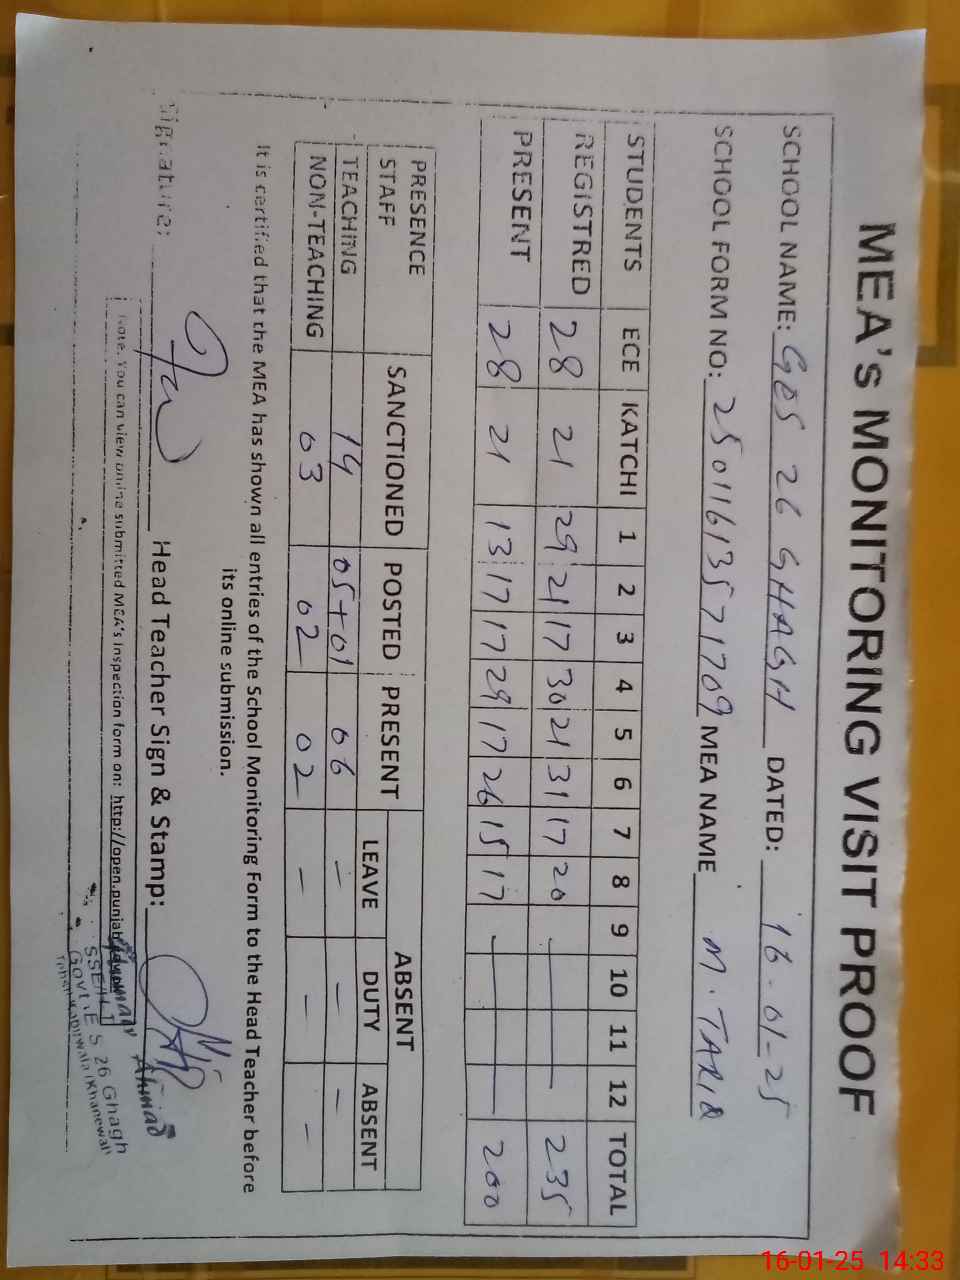 MEA's MONITORING VISIT PROOF
SCHOOL NAME: GES 26 GHAGH DATED: 16-01-25
SCHOOL FORM NO: 25011613571709 MEA NAME M. TARIQ
STUDENTS ECE KATCHI 1 2 3 4 5 6 7 8 9 10 11 12 TOTAL
REGISTRED 28 21 29 21 17 30 21 31 17 20 — — — — 235
PRESENT 28 21 13 17 17 29 17 26 15 17 — — — — 200
PRESENCE SANCTIONED POSTED PRESENT ABSENT
STAFF LEAVE DUTY ABSENT
TEACHING 14 05+01 06 — — —
NON-TEACHING 03 02 02 — — —
It is certified that the MEA has shown all entries of the School Monitoring Form to the Head Teacher before
its online submission.
Signature: Head Teacher Sign & Stamp:
Note. You can view online submitted MEA's inspection form on: http://open.punjab
Ahmad
Govt E S 26 Ghagh
Kabirwala (Khanewal)
16-01-25 14:33